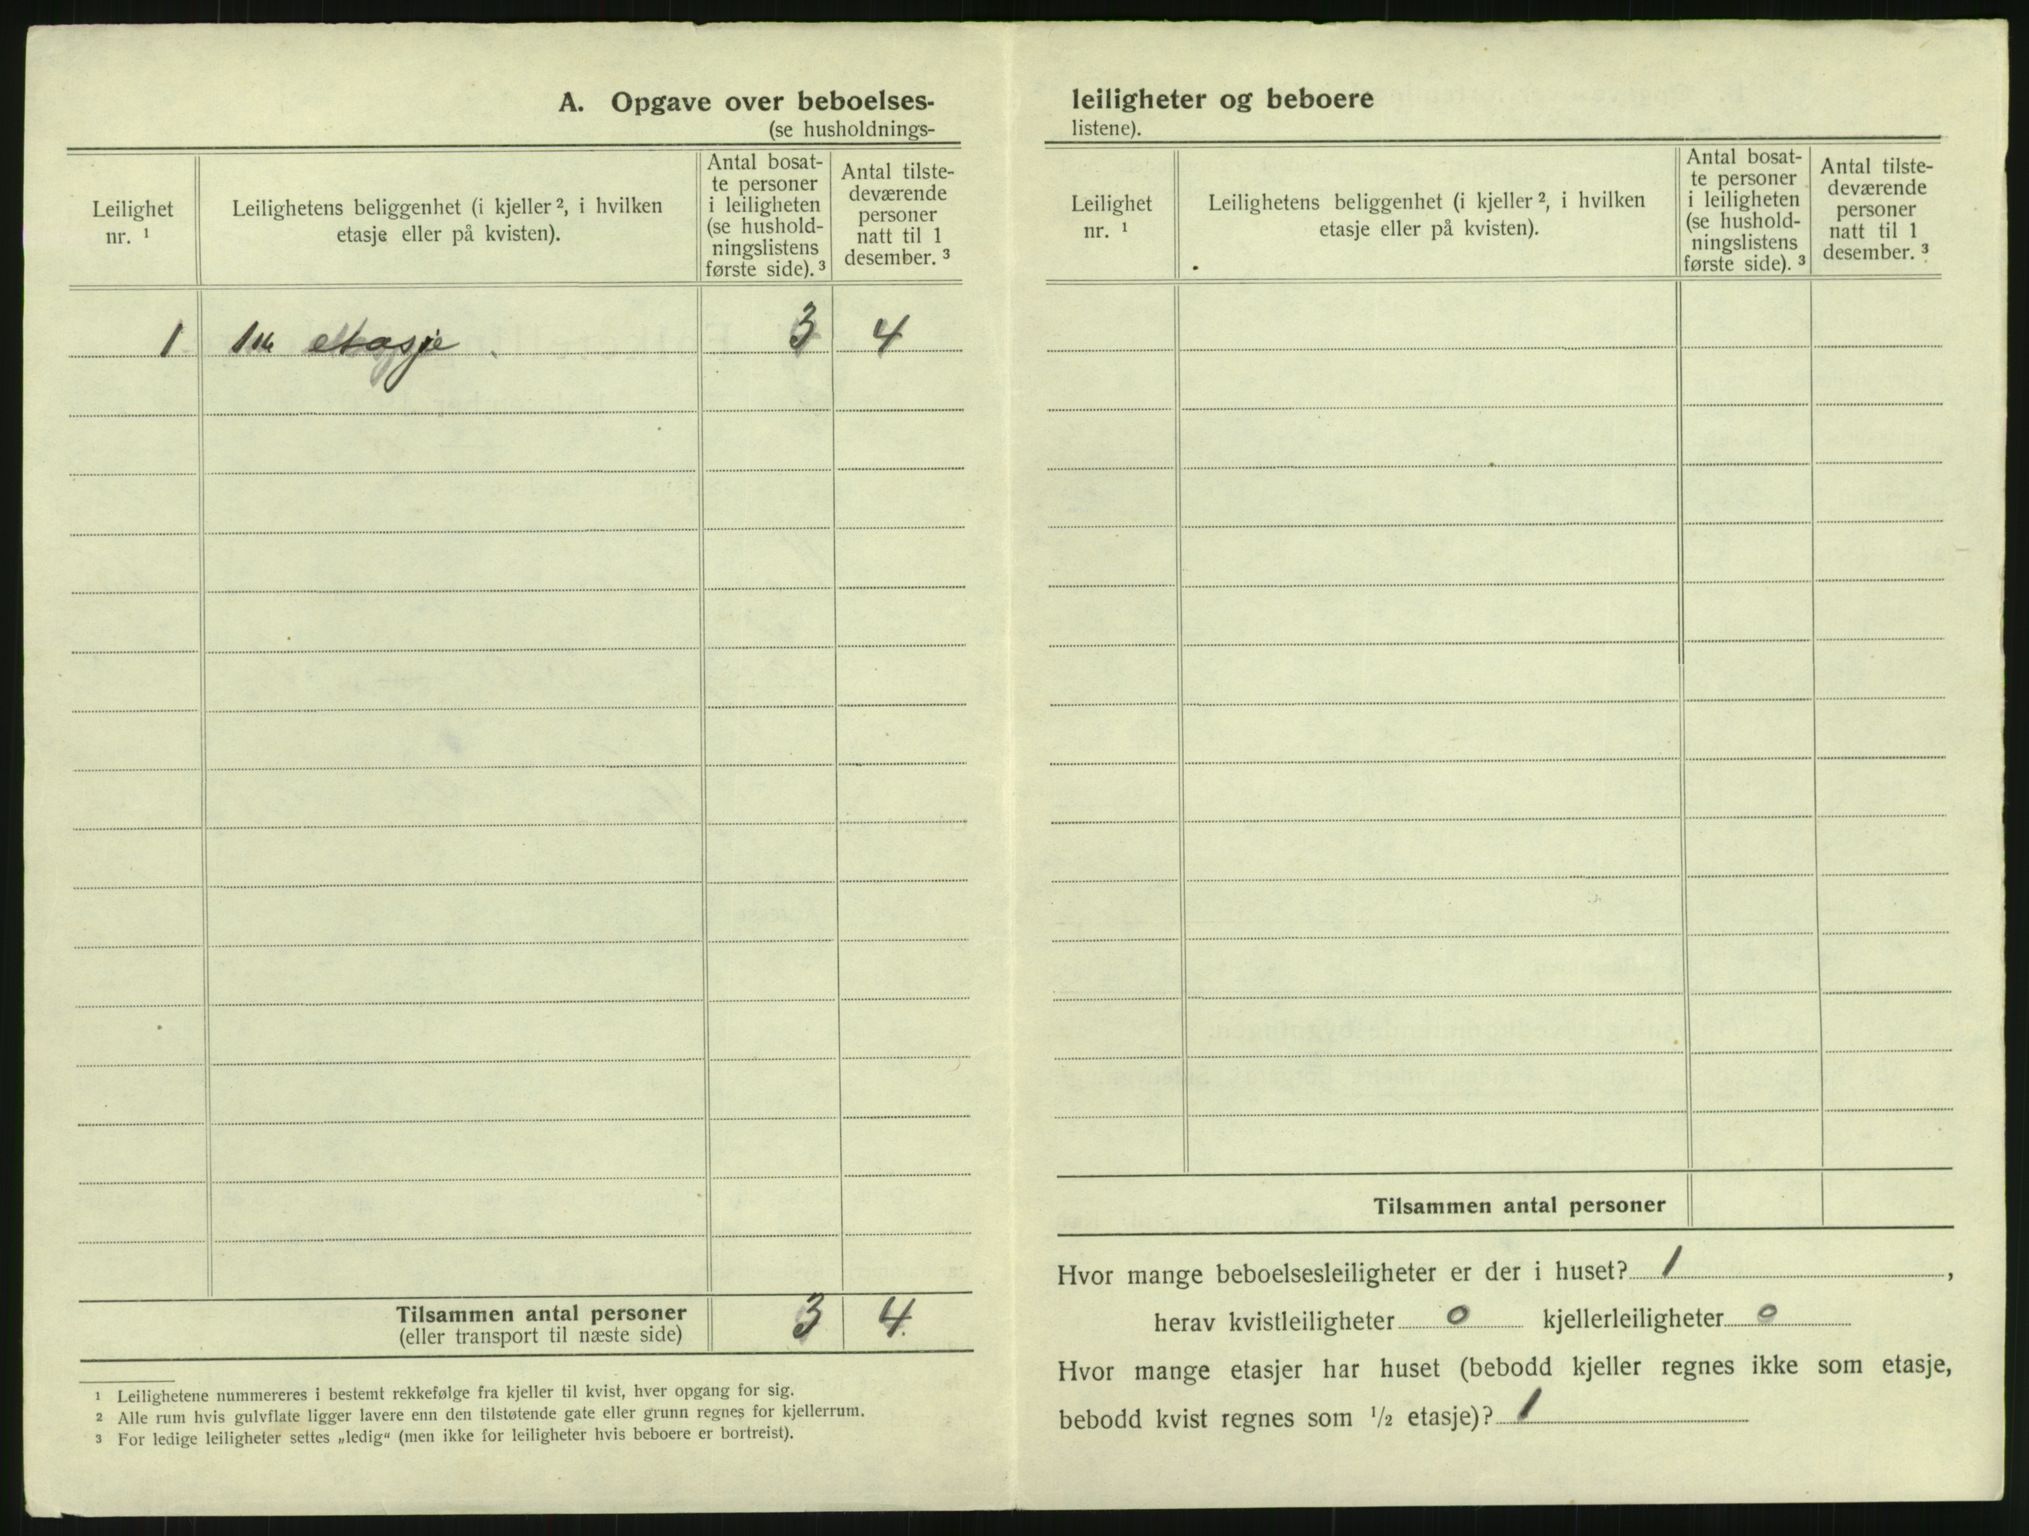 A. Opgave over beboelses-
(se husholdnings-
Leilighet
nr. ¹
Leilighetens beliggenhet (i kjeller ², i hvilken
etasje eller på kvisten).
Antal bosat-
te personer
i leiligheten
(se hushold-
ningslistens
første side). ³
Antal tilste-
deværende
personer
natt til 1
desember. ³
1 1ste etasje 3 4
Tilsammen antal personer 3 4.
(eller transport til næste side)
¹ Leilighetene nummereres i bestemt rekkefølge fra kjeller til kvist, hver opgang for sig.
² Alle rum hvis gulvflate ligger lavere enn den tilstøtende gate eller grunn regnes for kjellerrum.
³ For ledige leiligheter settes „ledig“ (men ikke for leiligheter hvis beboere er bortreist).
leiligheter og beboere
listene).
Leilighet
nr. ¹
Leilighetens beliggenhet (i kjeller ², i hvilken
etasje eller på kvisten).
Antal bosat-
te personer
i leiligheten
(se hushold-
ningslistens
første side). ³
Antal tilste-
deværende
personer
natt til 1
desember. ³
Tilsammen antal personer
Hvor mange beboelsesleiligheter er der i huset? 1 ,
herav kvistleiligheter 0 kjellerleiligheter 0
Hvor mange etasjer har huset (bebodd kjeller regnes ikke som etasje,
bebodd kvist regnes som ½ etasje)? 1